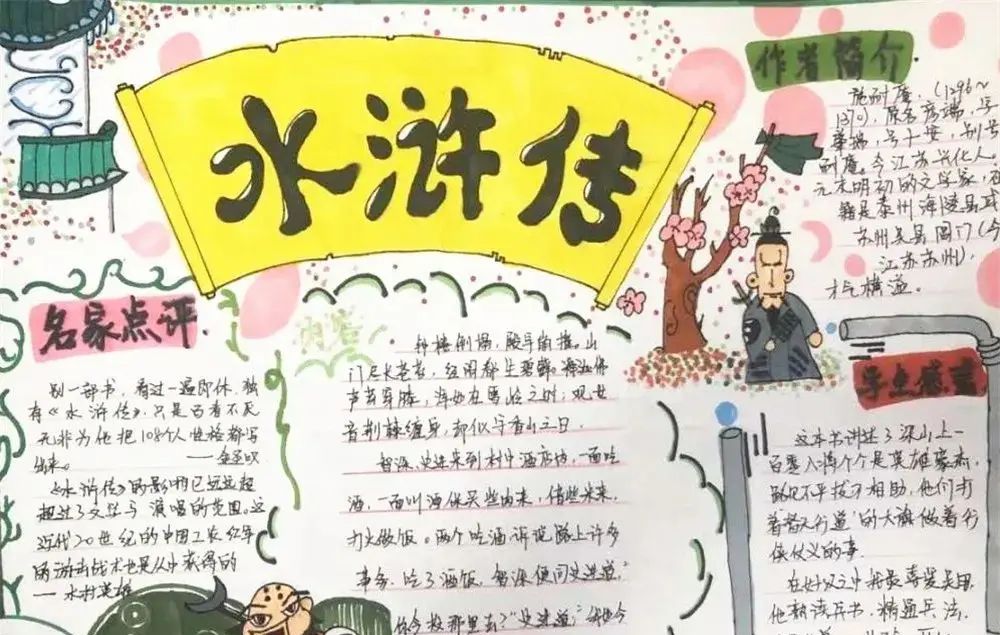 水浒传
作者简介
施耐庵，（1296～
1370），原名彦端，字
肇瑞，号子安，别号
耐庵。今江苏兴化人。
元末明初的文学家，
籍是泰州海陵县或
苏州吴县阊门（今
江苏苏州），
才气横溢。
名家点评
别一部书，看过一遍即休，独
有《水浒传》，只是百看不厌
无非为他把108个人性格都写
出来。
——金圣叹
《水浒传》的影响已远远超
超过了文学与演唱的范围。这
近代20世纪的中国工农红军
的游击战术也是从中获得的
内容
钟楼倒塌，殿宇崩摧。山
门尽长苍苔，经阁都生碧藓。
观世
音荆棘缠身，却似守香山之日．
智深、史进来到村中酒店内，一面吃
酒，一面叫酒保买些肉来，借些米来，
打火做饭。两个吃酒诉说路上许多
事务。吃了酒饭，智深便问史进道：
你今投那里去？”史进道：
这本书讲述了梁山上一
百零八将个个是英雄豪杰，
路见不平拔刀相助，他们打
着“替天行道”的大旗做着行
侠仗义的事．
在好汉之中我最喜爱吴用
他熟读兵书．精通兵法．